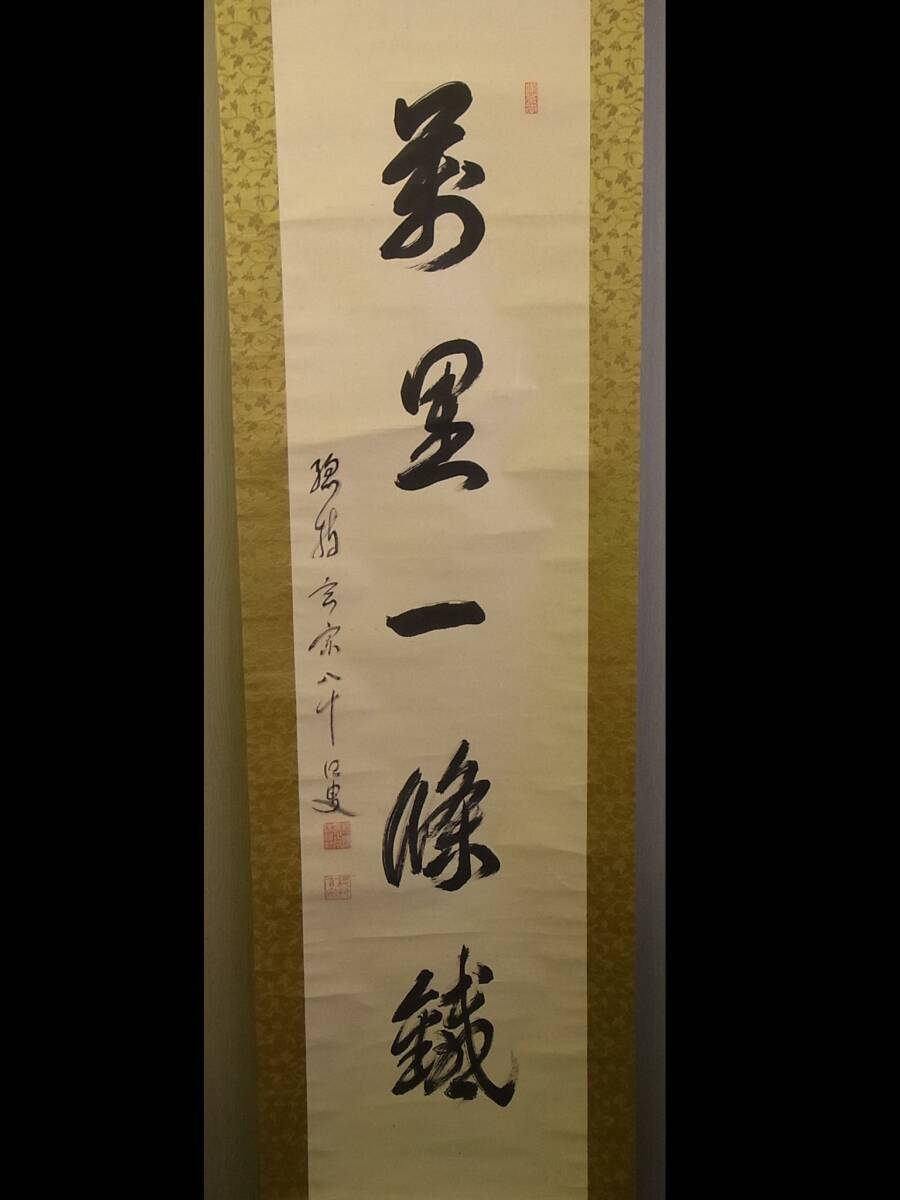 萬里一條鐵
總持玄宗八十四叟